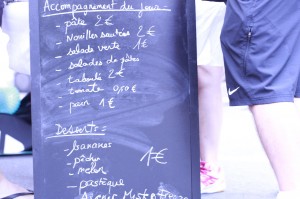 Accompagnement du jour :
- pâte 2€
- Nouilles sautées 2€
- salade verte 1€
- salades de pâtes
- taboulé 2€
- tomate 0,50€
- pain 1€
Desserts :
- bananes
- pêche 1€
- melon
- pastèque